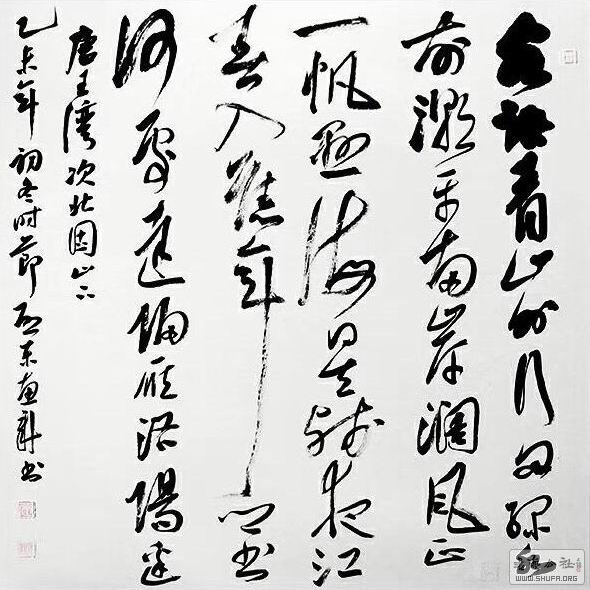 客路青山外行舟绿水
前潮平两岸濶风正
一帆悬海日生残夜江
春入舊年乡书
何處达归雁洛陽边
唐王湾次北固山下
乙未年初冬时節东书
WWW.SHUFA.ORG